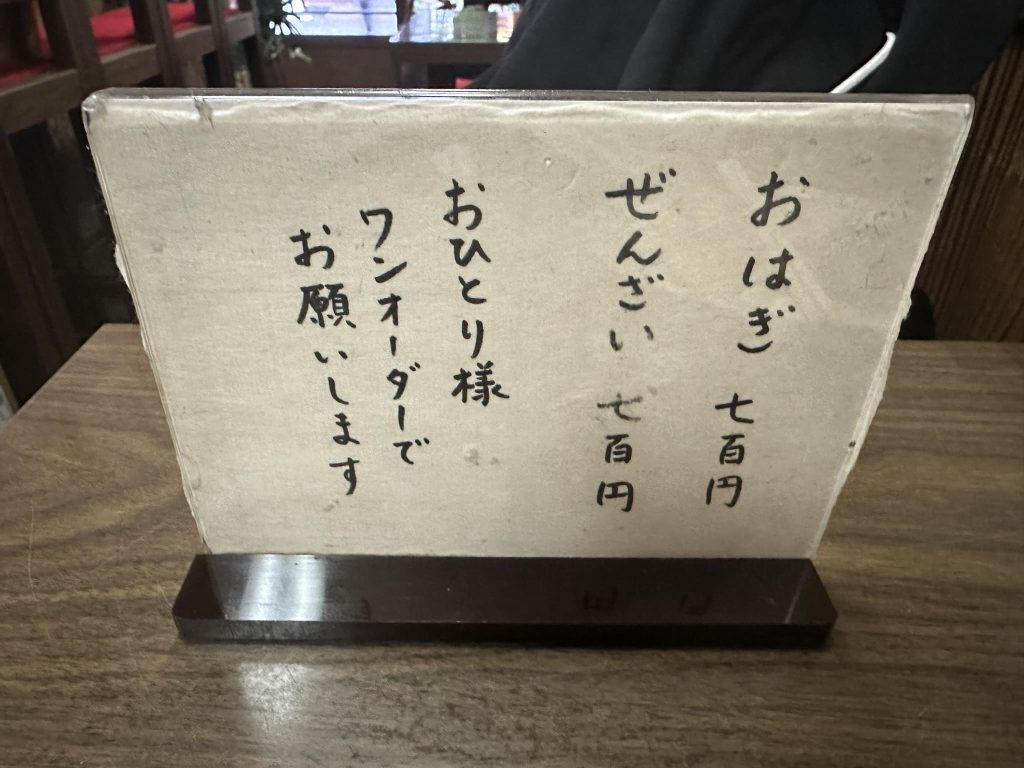 おはぎ 七百円
ぜんざい 七百円
おひとり様
ワンオーダーで
お願いします